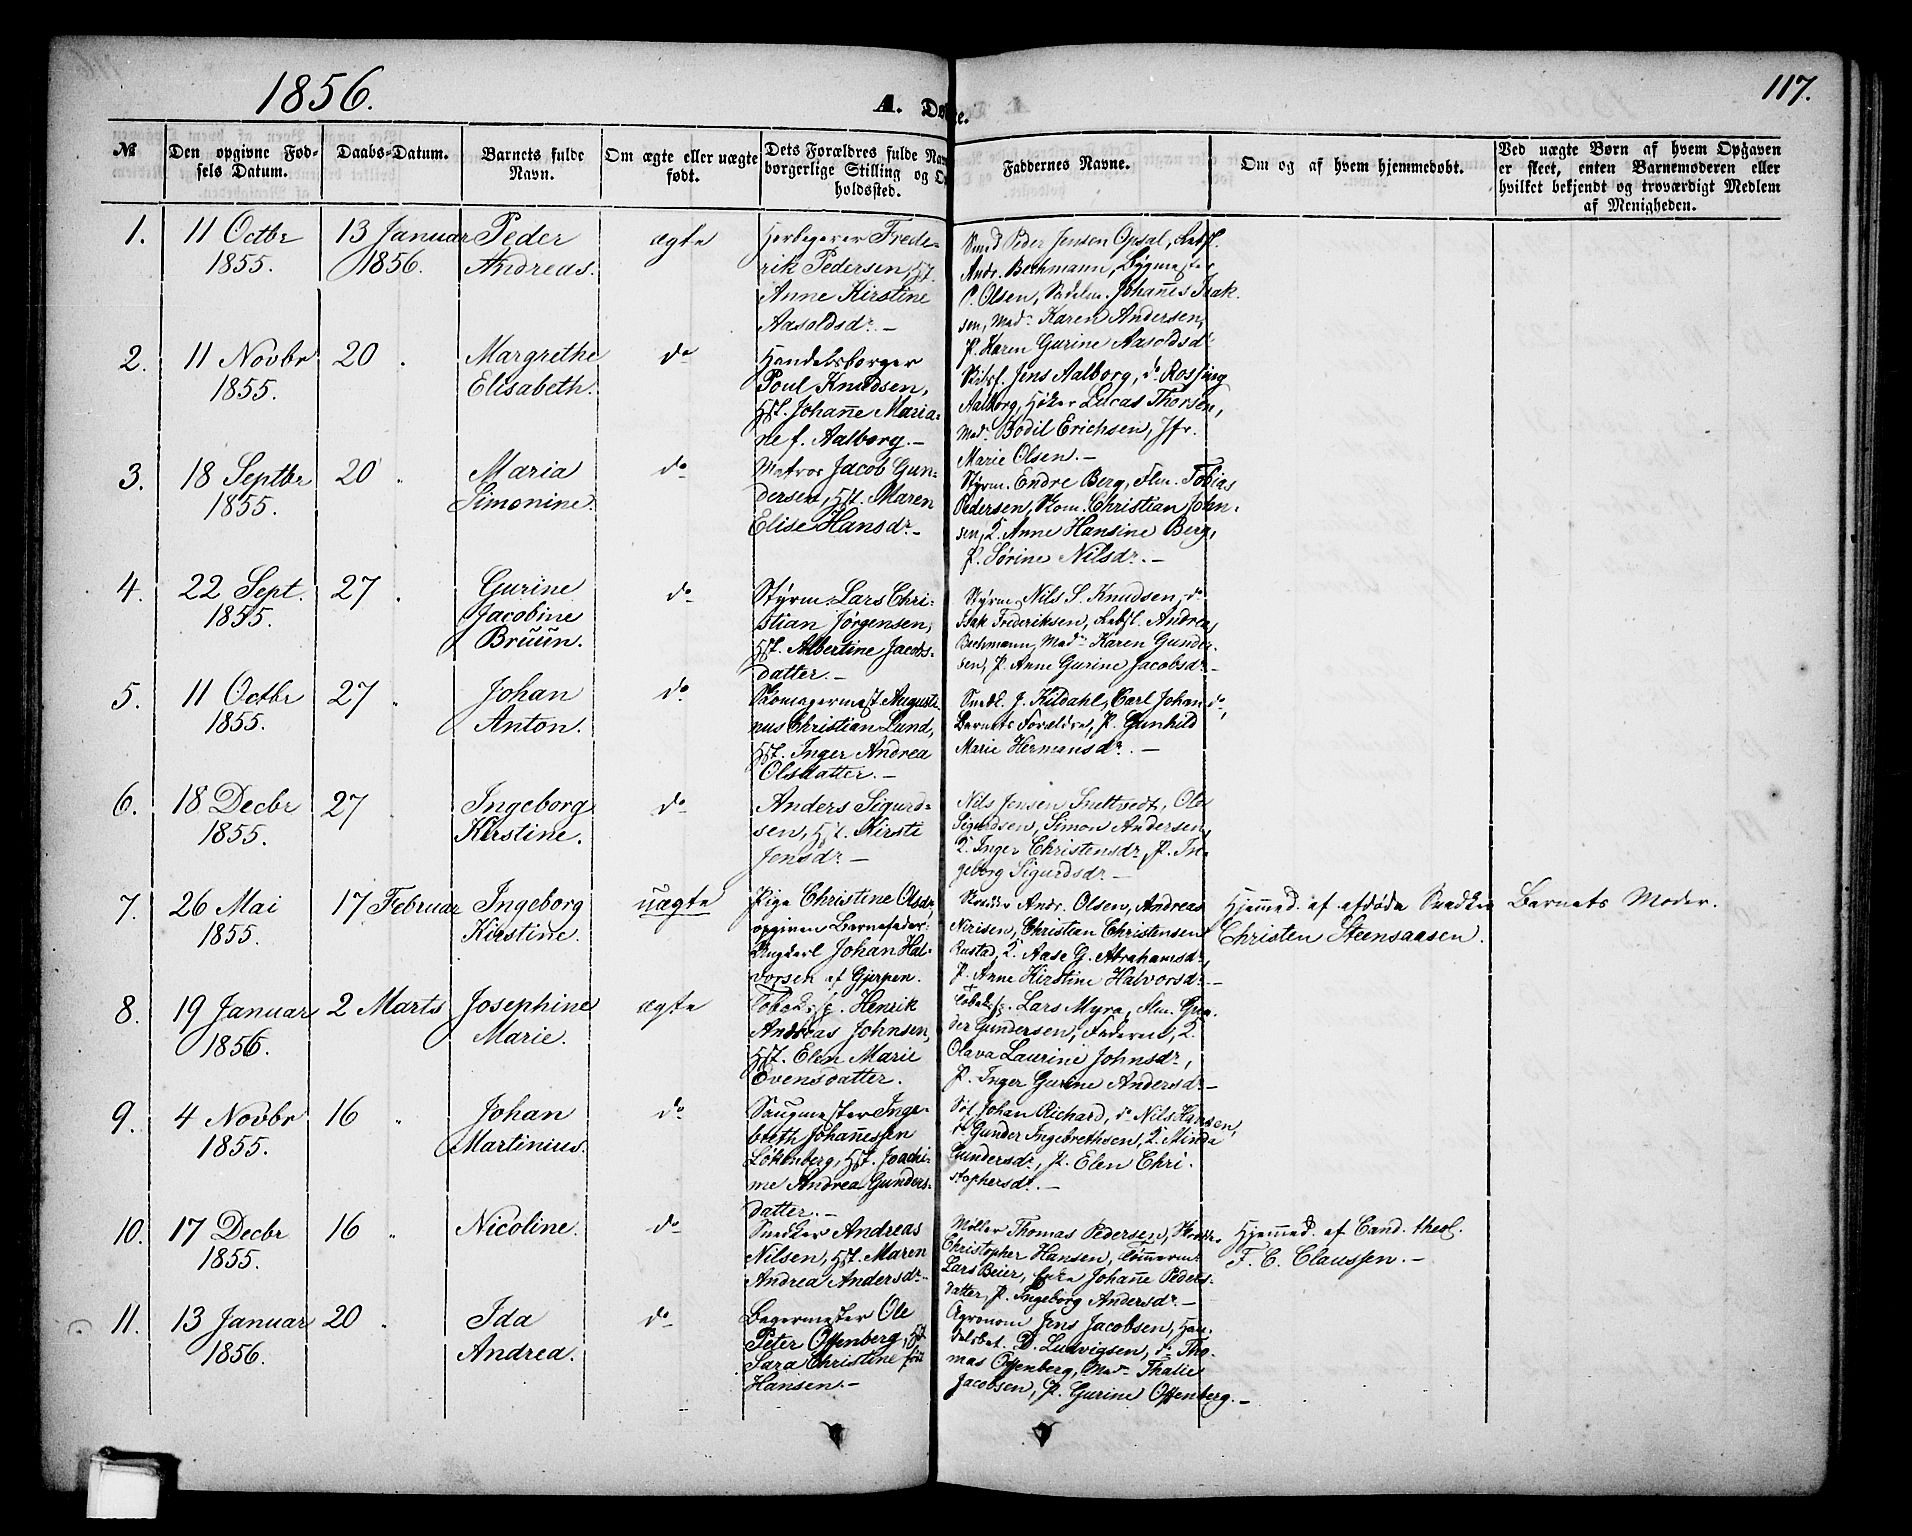 1856.
A. Døbte.
117.
No
Den opgivne Fød-
sels Datum.
Daabs-Datum.
Barnets fulde
Navn.
Om ægte eller uægte
født.
Dets Forældres fulde Na
borgerlige Stilling og O
holdssted.
Faddernes Navne.
Om og af hvem hjemmedøbt.
Ved uægte Børn af hvem Opgaven
er skeet, enten Barnemoderen eller
hvilket bekjendt og troværdigt Medlem
af Menigheden.
1.
11 Octbr
1855.
13 Januar
1856.
Peder
Andreas.
ægte
Herbegerer Frede-
rik Pedersen, Hst.
Anne Kirstine
Aasoldsdr. -
Smed Peder Jensen Opsal,
Andr. Bechmann, Bygmester
P. Olsen, Johanes Isak-
sen, Mad. Karen Andersen,
P. Karen Gurine Aasoldsdr
2.
11 Novbr
1855.
20 "
Margrethe
Elisabeth.
do
Handelsborger
Poul Knudsen,
Hst. Johane Maria-
ne f. Aalborg. -
Skibsf. Jens Aalborg, do Rossing
Aalborg, Høker Lucas Thorsen,
Mad. Bodil Erichsen, Jfr.
Marie Olsen. -
3.
18 Septbr
1855.
20 "
Maria
Simonine.
do
Matros Jacob Gun-
dersen, Hst. Maren
Elise Hansdr. -
Styrm. Endre Berg, Flm. Tobias
Pedersen, Skom. Christian John-
sen, K. Anne Hansine Berg,
P. Sørine Nilsdr. -
4.
22 Sept.
1855.
27 "
Gurine
Jacobine
Bruun.
do
Styrm. Lars Chri-
stian Jørgensen,
Hst. Albertine Jacobs-
datter. -
Styrm. Nils S. Knudsen, do
Isak Frederiksen, Andreas
Bechmann, Mad. Karen Gunder-
sen, P. Anne Gurine Jacobsdr -
5.
11 Octbr
1855.
27 "
Johan
Anton.
do
Skomagermest. Augusti-
nus Christian Lund,
Hst. Inger Andrea
Olsdatter. -
Snedk. J. Kildahl, Carl Johan do,
Barnets Forældre, P. Gunhild
Marie Hermansdr. -
6.
18 Decbr
1855.
27 "
Ingeborg
Kirstine.
do
Anders Sigurd-
sen, Hst. Kirsti
Jensdr -
Nils Jensen Snettvedt, Ole
Sigurdsen, Simon Andersen,
K. Inger Christensdr, P. In-
geborg Sigurdsdr -
7.
26 Mai
1855.
17 Februar
Ingeborg
Kirstine.
uægte
Pige Christine Olsdr,
opgiven Barnefader:
Ungkarl Johan Hal-
vorsen af Gjerpen.
Andr. Olsen, Andreas
Nirisen, Christian Christensen
Rustad, K. Aase G. Abrahamsdr,
P. Anne Kirstine Halvorsdr -
Hjemmed. af afdøde Snedker
Christen Steensaasen.
Barnets Moder.
8.
19 Januar
1856.
2 Marts
Josephine
Marie.
ægte
Henrik
Andreas Johnsen,
Hst. Elen Marie
Evensdatter.
Lars Myra, Flm. Gun-
der Gundersen, Faderen, K.
Olava Laurine Johnsdr,
P. Inger Gurine Andersdr -
9.
4 Novbr
1855.
16 "
Johan
Martinius.
do
Saugmester Inge-
breth Johanessen
Løkenberg, Hst. Joachi-
me Andrea Gunders-
datter. -
Søf. Johan Richard, do Nils Hansen,
do Gunder Ingebrethsen, K. Minda
Gundersdr, P. Elen Chri-
stophersdr. -
10.
17 Decbr
1855.
16 "
Nicoline.
do
Snedker Andreas
Nilsen, Hst. Maren
Andrea Andersdr. -
Møller Thomas Pedersen,
Christopher Hansen, Tømmerm.
Lars Beier, Enke Johane Peders-
datter, P. Ingeborg Andersdr -
Hjemmed. af Cand. theol.
F. C. Claussen. -
11.
13 Januar
1856.
20 "
Ida
Andrea.
do
Bagermester Ole
Peter Offenberg, Hst.
Sara Christine født
Hansen. -
Agronom Jens Jacobsen, Han-
delsbet. D. Ludvigsen, do Tho-
mas Offenberg, Mad. Thalie
Jacobsen, P. Gurine Offenberg. -